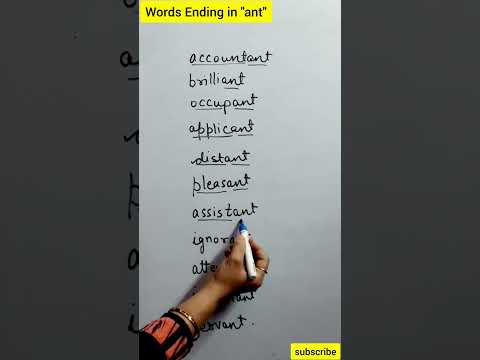 Words Ending in "ant"
accountant
brilliant
occupant
applicant
distant
pleasant
assistant
subscribe